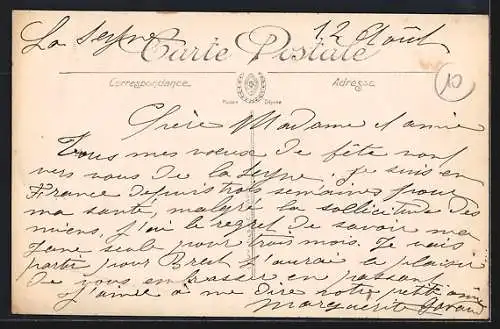 La Seyne 12 Août
Carte Postale
Correspondance Adresse
10
Modèle Déposé
Chère Madame et amie
Tous mes voeux de fête vont
vers vous de La Seyne. je suis en
France depuis trois semaines pour
ma santé, malgré la sollicitude des
miens, j'ai le regret de savoir ma
seule pour trois mois. Je vais
partir pour Brest j'aurai le plaisir
de vous embrasser en passant
J'aime à me dire votre petite amie
Marguerite